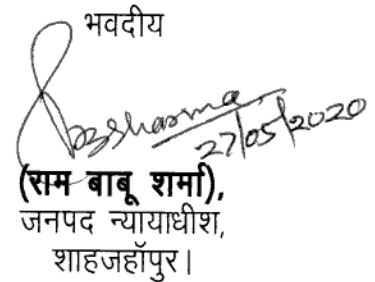 भवदीय
Rbsharma
27/05/2020
(राम बाबू शर्मा),
जनपद न्यायाधीश,
शाहजहॉपुर।